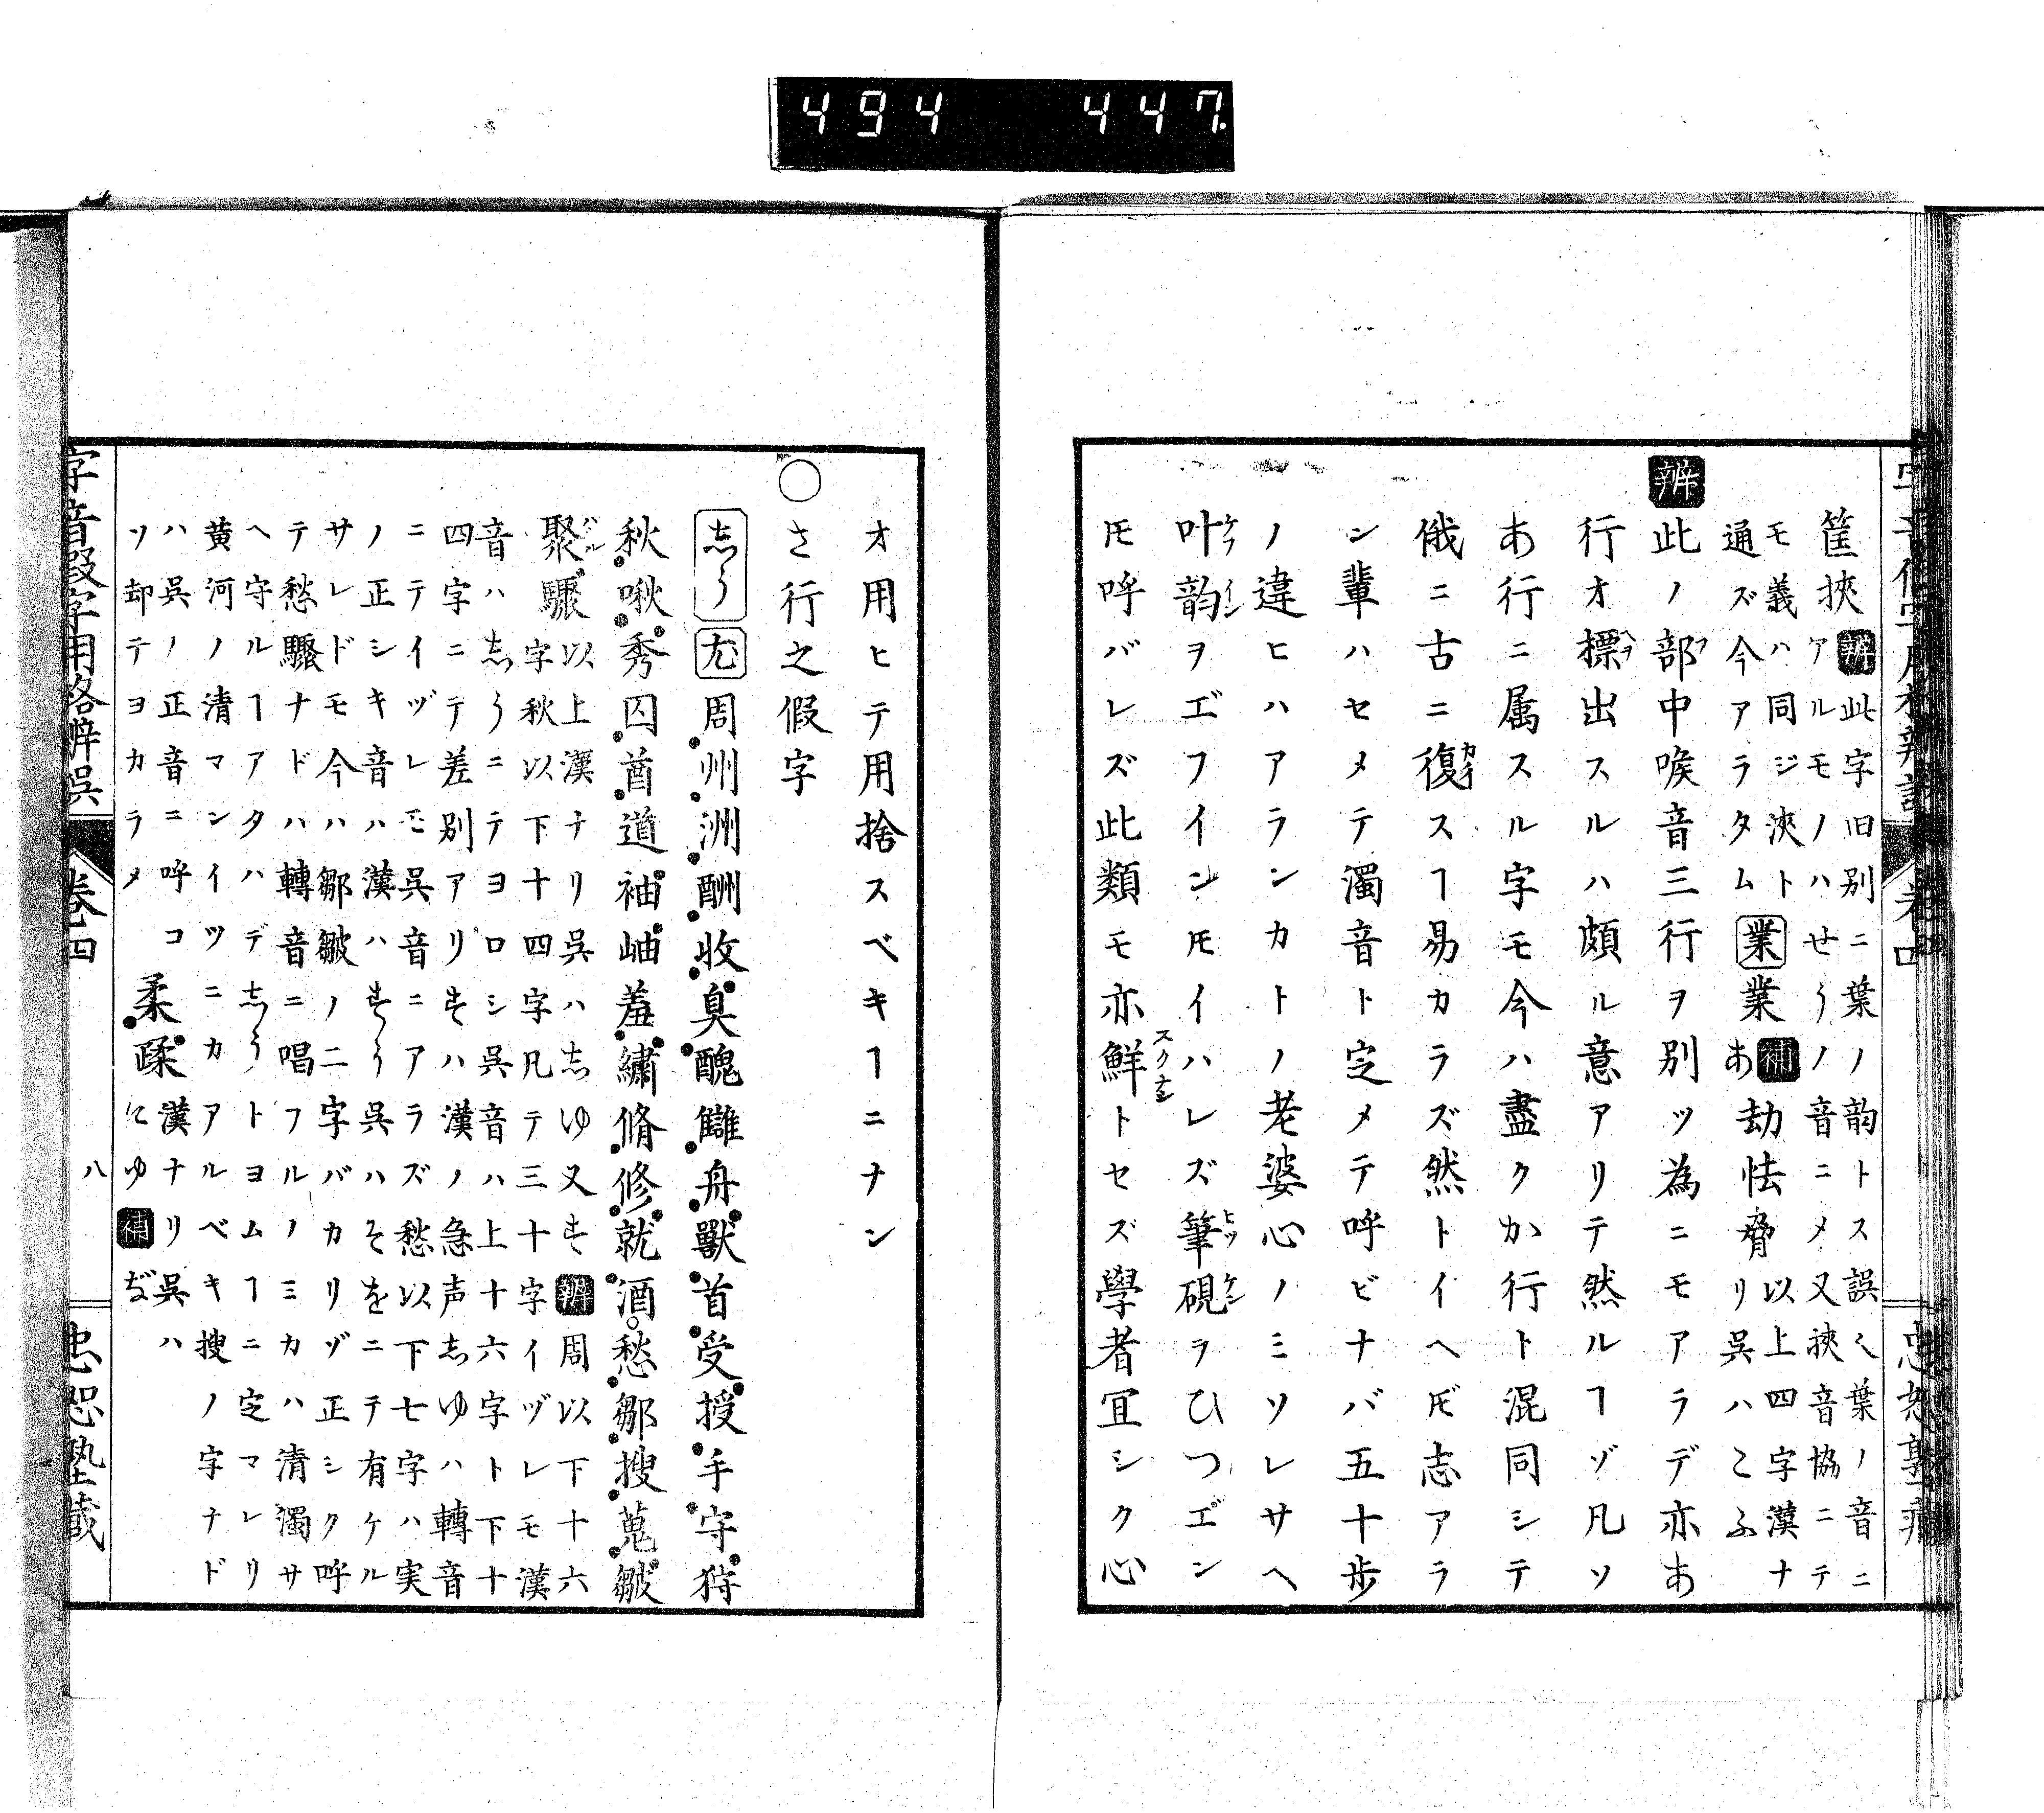 494 447.
筐挾 辨 此字旧別ニ葉ノ韵トス誤く葉ノ音ニ
アルモノハせうノ音ニメ又挾音協ニテ
モ義ハ同ジ浹ト
通ズ今アラタム 業 業 補 劫怯脅 以上四字漢ナ
あリ呉ハこふ
辨 此ノ部中喉音三行ヲ別ツ為ニモアラデ亦あ
行オ標出スルハ頗ル意アリテ然ルヿゾ凡ソ
あ行ニ属スル字モ今ハ盡クか行ト混同シテ
俄ニ古ニ復スヿ易カラズ然トイヘ𪜈志アラ
ン輩ハセメテ濁音ト定メテ呼ビナバ五十歩
ノ違ヒハアランカトノ老婆心ノミソレサヘ
叶韵ヲエフイン𪜈イハレズ筆硯ヲひつエン
𪜈呼バレズ此類モ亦鮮トセズ學者宜シク心
オ用ヒテ用捨スベキヿニナン
○さ行之假字
志う 尤 周州洲酬收臭醜讎舟獸首受授手守狩
秋啾秀囚酋遒袖岫羞繡脩修就酒愁鄒搜蒐皺
聚驟 以上漢ナリ呉ハ志ゆ又す 辨 周以下十六
字秋以下十四字凡テ三十字イヅレモ漢
音ハ志うニテヨロシ呉音ハ上十六字ト下十
四字ニテ差別アリすハ漢ノ急声志ゆハ轉音
ニテイヅレモ呉音ニアラズ愁以下七字ハ実
ノ正シキ音ハ漢ハすう呉ハそをニテ有ケル
サレドモ今ハ鄒皺ノ二字バカリヅ正シク呼
テ愁驟ナドハ轉音ニ唱フルノミカハ清濁サ
ヘ守ルヿアタハデ志うトヨムヿニ定マレリ
黄河ノ清マンイツニカアルベキ搜ノ字ナド
ハ呉ノ正音ニ呼コ
ツ却テヨカラメ 柔蹂 漢ナリ呉ハ
にゆ 補 ぢ
字音假字用格辨誤 卷四 八 忠恕塾藏